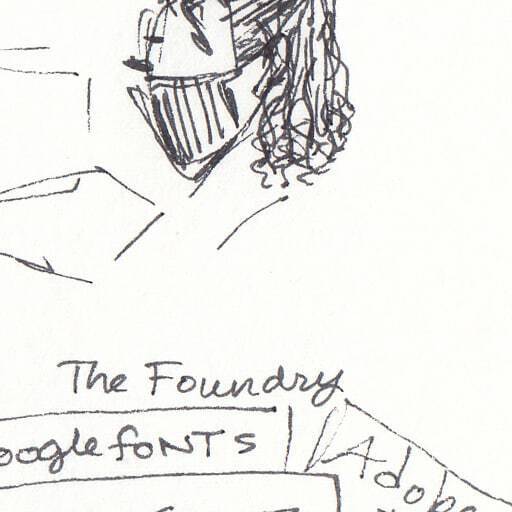 The Foundry
oogle foNTS
Adobe